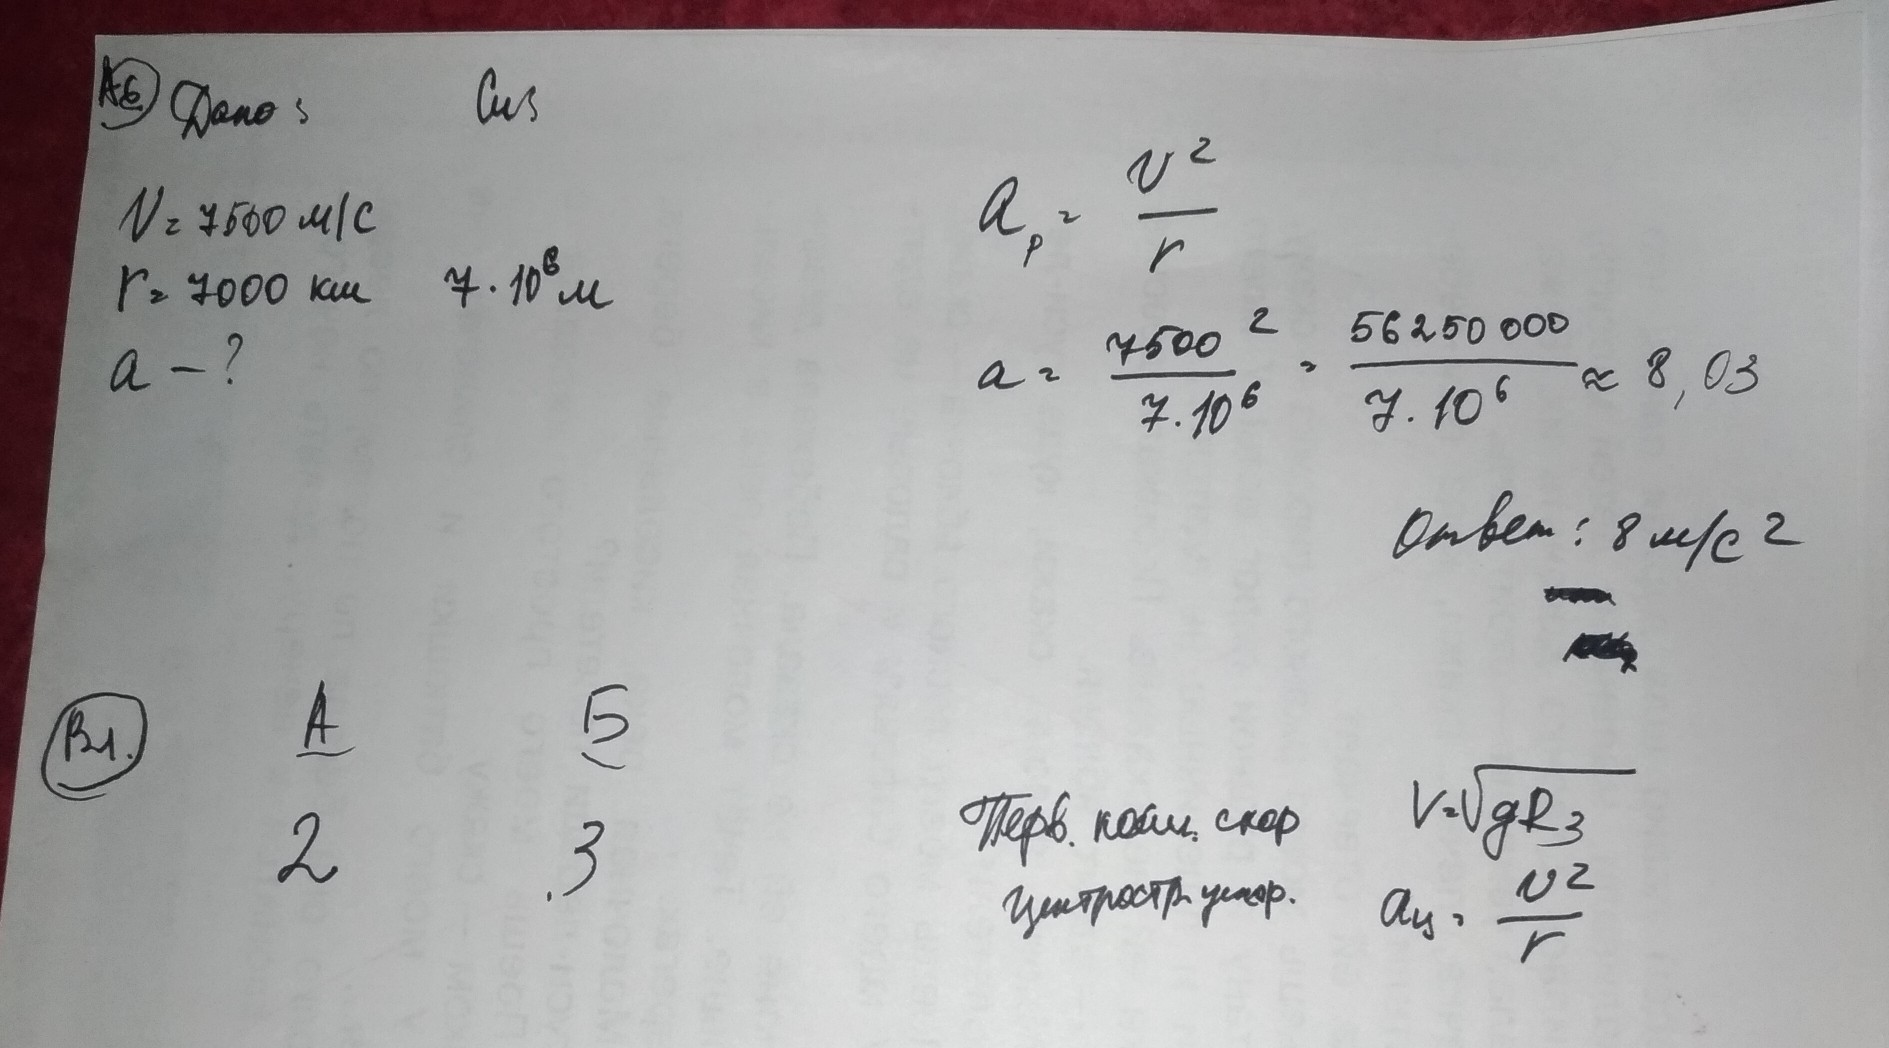 А6 Дано: Си:
V = 7500 м/с
r = 7000 км 7·10⁶ м
a - ?
aр = v² / r
a = 7500² / 7·10⁶ = 56250000 / 7·10⁶ ≈ 8,03
Ответ: 8 м/с²
В1. А Б
2 3
Перв. косм. скор V = √gRз
Центростр. ускор. aц = v² / r